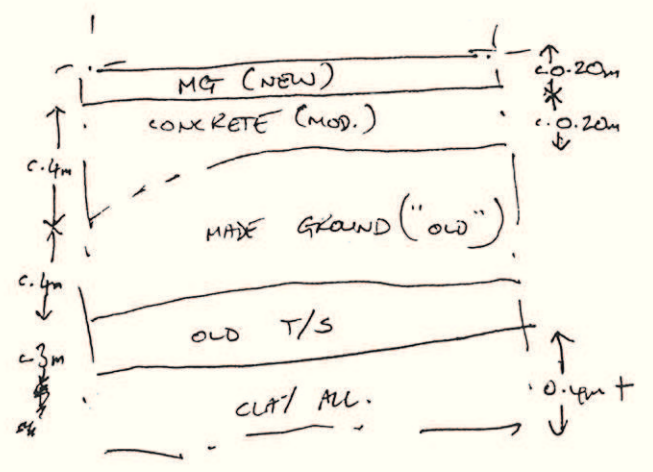 MG (NEW)
c.0.20m
CONCRETE (MOD.)
c.0.20m
c.4m
MADE GROUND ("OLD")
c.4m
OLD T/S
c.3m
0.4m +
CLAY ALL.